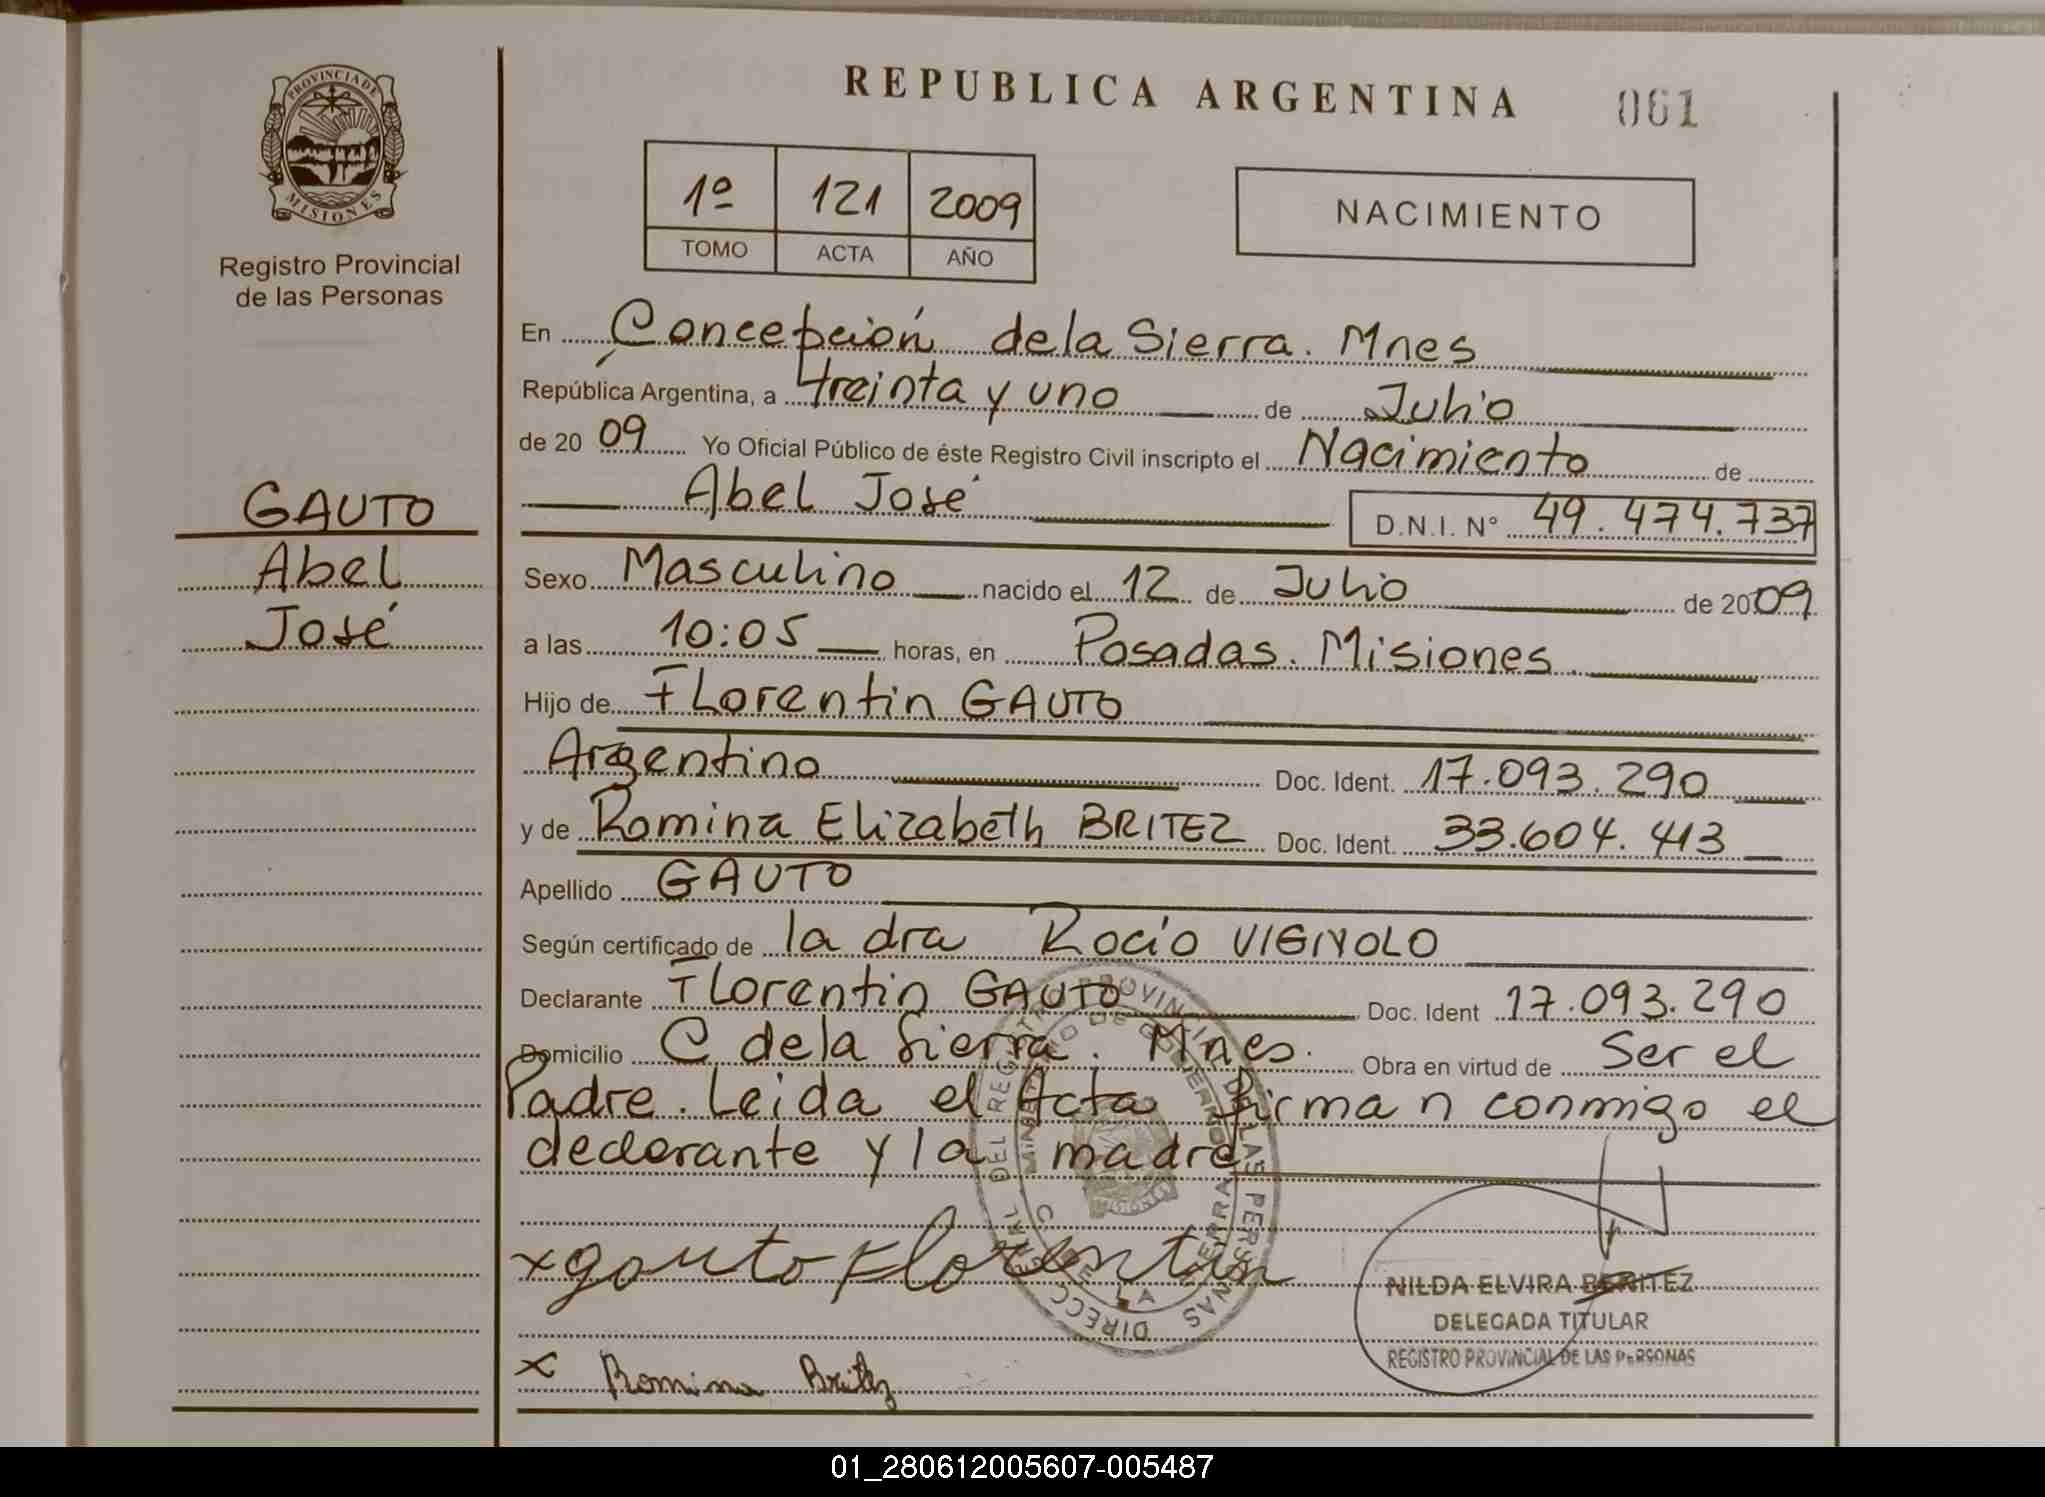 REPUBLICA ARGENTINA 061
PROVINCIA DE MISIONES
Registro Provincial
de las Personas
1º 121 2009
TOMO ACTA AÑO
NACIMIENTO
GAUTO
Abel
José
En Concepción de la Sierra. Mnes
República Argentina, a treinta y uno de Julio
de 20 09 Yo Oficial Público de éste Registro Civil inscripto el Nacimiento de
Abel José D.N.I. N° 49.474.737
Sexo Masculino nacido el 12 de Julio de 2009
a las 10:05 horas, en Posadas. Misiones.
Hijo de Florentin GAUTO
Argentino Doc. Ident. 17.093.290
y de Romina Elizabeth BRITEZ Doc. Ident. 33.604.413
Apellido GAUTO
Según certificado de la dra Rocío VIGNOLO
Declarante Florentin GAUTO Doc. Ident 17.093.290
Domicilio C de la Sierra. Mnes. Obra en virtud de Ser el
Padre. Leida el Acta firman conmigo el
declarante y la madre
x gauto Florentin
x Romina Britez
NILDA ELVIRA BENITEZ
DELEGADA TITULAR
REGISTRO PROVINCIAL DE LAS PERSONAS
01_280612005607-005487